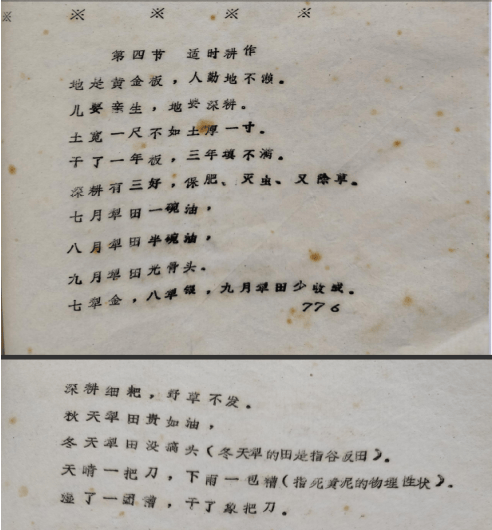 ※ ※ ※ ※ ※
第四节 适时耕作
地是黄金板，人勤地不懒。
儿要亲生，地要深耕。
土宽一尺不如土厚一寸。
干了一年板，三年填不满。
深耕有三好，保肥、灭虫、又除草。
七月犁田一碗油，
八月犁田半碗油，
九月犁田光骨头。
七犁金，八犁银，九月犁田少收成。
776
深耕细耙，野草不发。
秋天犁田贵如油，
冬天犁田没搞头（冬天犁的田是指谷板田）。
天晴一把刀，下雨一包糟（指死黄泥的物理性状）。
湿了一团糟，干了象把刀。